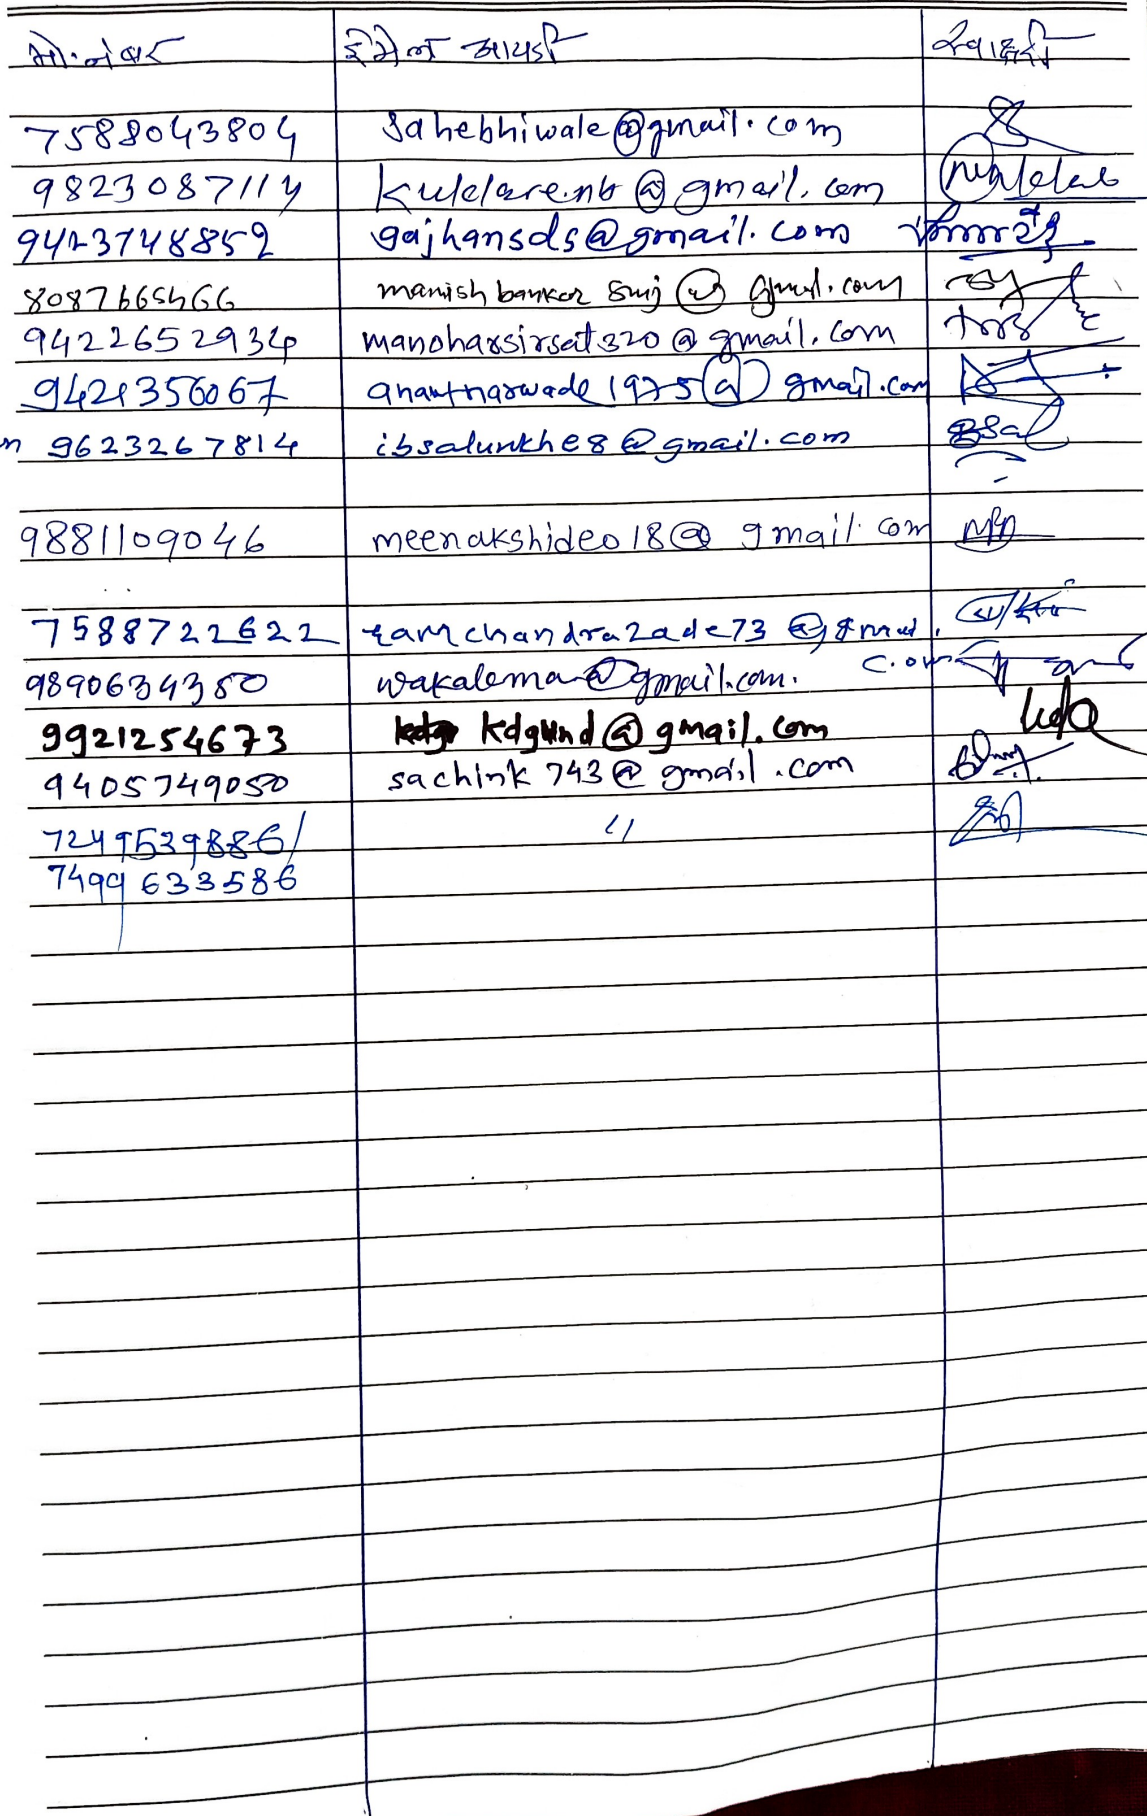 मो. नंबर ईमेल आयडी स्वाक्षरी
7588043804 sahebhiwale@gmail.com
9823087114 kuklare.nb@gmail.com
9423748852 gajhansds@gmail.com
8087665466 manishbankar smj@gmail.com
9422652934 manoharsirsat320@gmail.com
9421356067 anantnarwade1975@gmail.com
9623267814 ibsalunkhe8@gmail.com
9881109046 meenakshideo18@gmail.com
7588722622 ramchandrazade73@gmail.
com
9890634350 wakalema@gmail.com.
9921254673 kdgund@gmail.com
9405749050 sachink743@gmail.com
7249539886/ "
7499633586